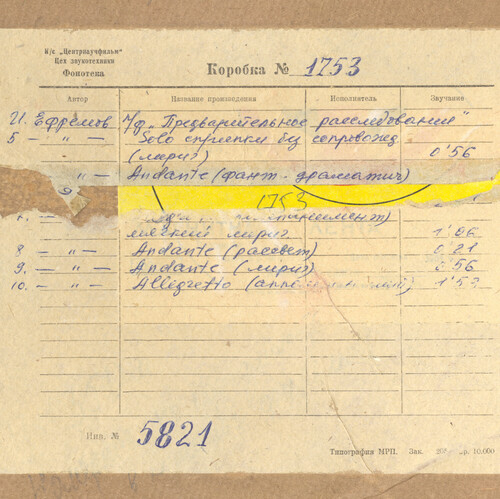 К/с „Центрнаучфильм"
Цех звукотехники
Фонотека
Коробка № 1753
Автор Название произведения Исполнитель Звучание
И. Ефремов К/ф „Предварительное расследование"
5 — „ — Solo скрипки без сопровожд
(лириз) 0'56
— „ — Andante (фант. драматич)
1753
мягкий лириз
8 — „ — Andante (рассвет) 0'21
9. — „ — Andante (лириз) 0'56
10. — „ — Allegretto 1'53
Инв. № 5821
Типография МРП. Зак. 10.000